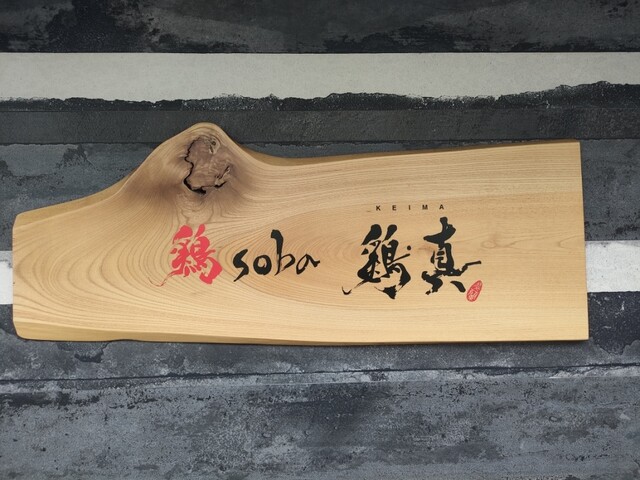 KEIMA
鶏soba 鶏真